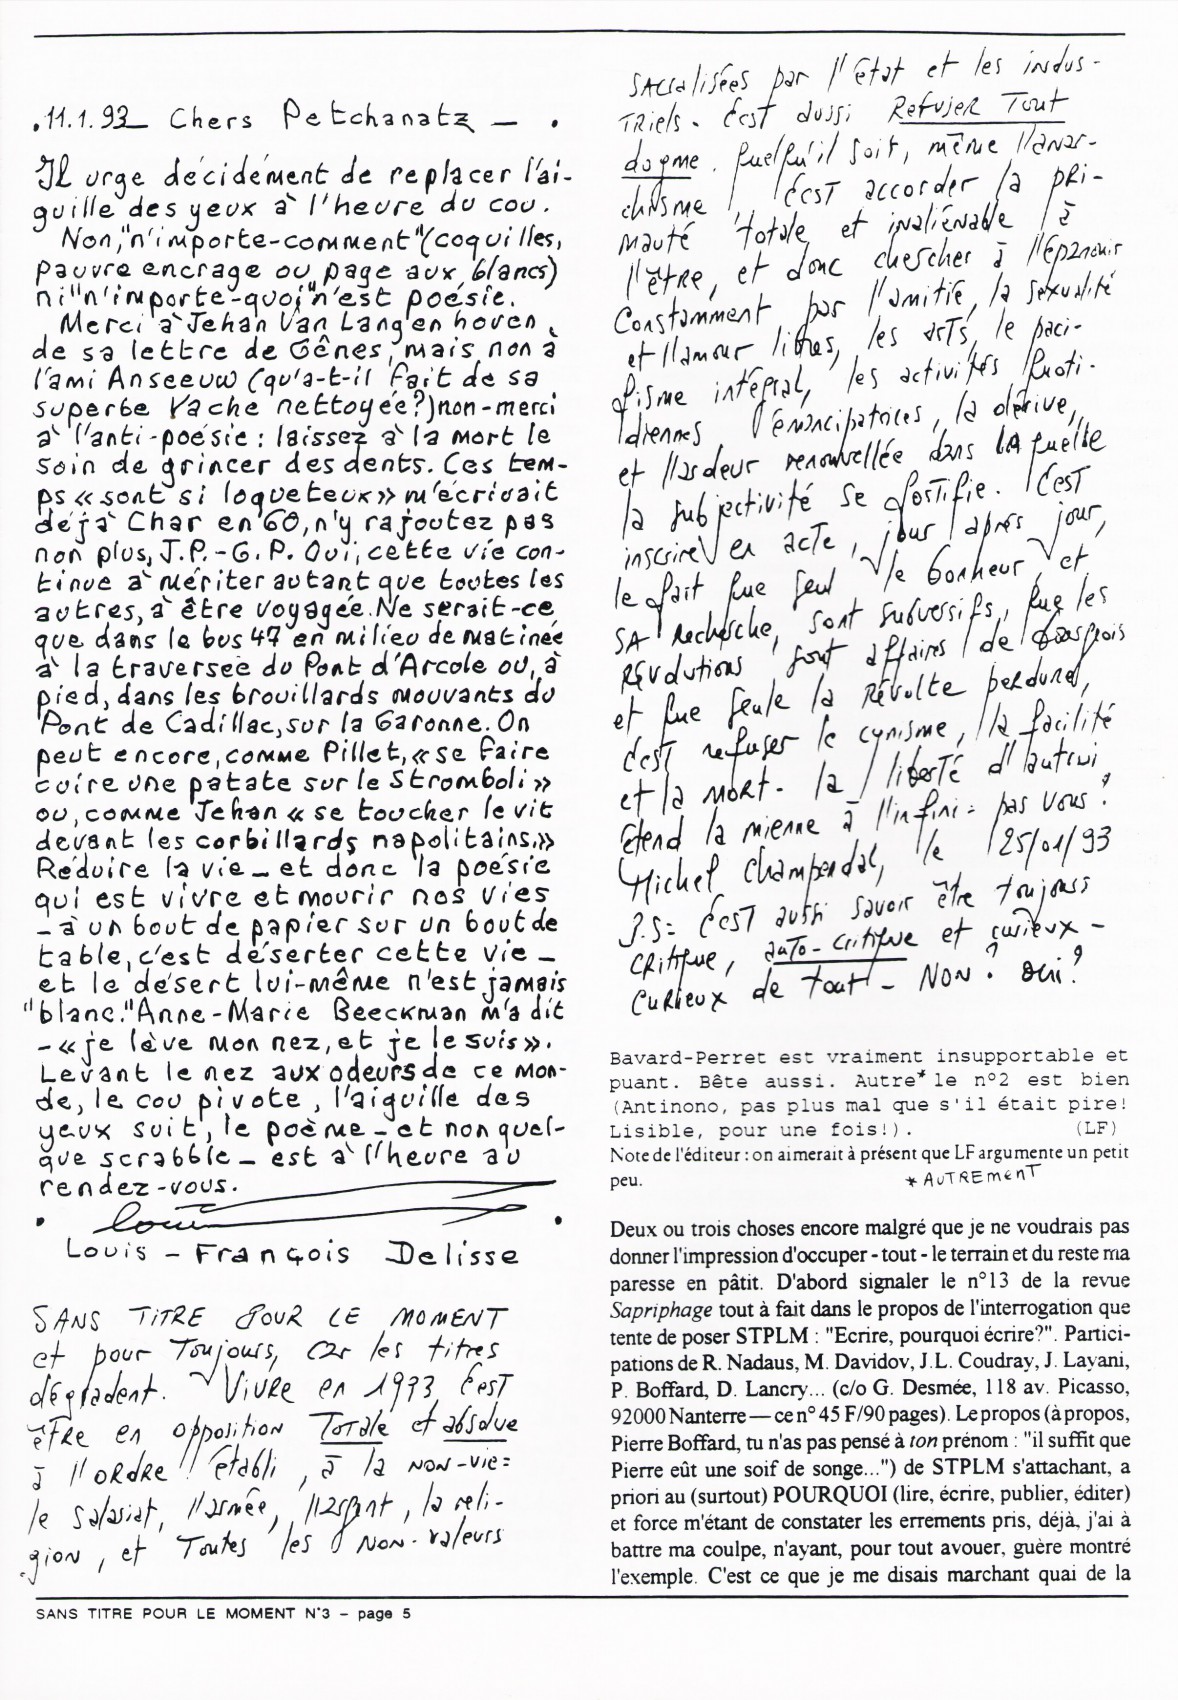 .11.1.93_ Chers Petchanatz – .
Il urge décidément de replacer l'ai-
guille des yeux à l'heure du cou.
Non, "n'importe-comment" (coquilles,
pauvre encrage ou page aux blancs)
ni "n'importe-quoi" n'est poésie.
Merci à Jehan Van Langenhoven,
de sa lettre de Gênes, mais non à
l'ami Anseeuw (qu'a-t-il fait de sa
superbe Vache nettoyée?) non-merci
à l'anti-poésie : laissez à la mort le
soin de grincer des dents. Ces tem-
ps «sont si loqueteux» m'écrivait
déjà Char en 60, n'y rajoutez pas
non plus, J.P.-G.P. Oui, cette vie con-
tinue à mériter autant que toutes les
autres, à être voyagée. Ne serait-ce
que dans le bus 47 en milieu de matinée
à la traversée du Pont d'Arcole ou, à
pied, dans les brouillards mouvants du
Pont de Cadillac, sur la Garonne. On
peut encore, comme Pillet, «se faire
cuire une patate sur le Stromboli»
ou, comme Jehan «se toucher le vit
devant les corbillards napolitains.»
Réduire la vie _ et donc la poésie
qui est vivre et mourir nos vies
_ à un bout de papier sur un bout de
table, c'est déserter cette vie _
et le désert lui-même n'est jamais
"blanc." Anne-Marie Beeckman m'a dit
-«je lève mon nez, et je le suis».
Levant le nez aux odeurs de ce mon-
de, le cou pivote, l'aiguille des
yeux suit, le poème _ et non quel-
que scrabble _ est à l'heure au
rendez-vous.
Louis
Louis - François Delisse
SANS TITRE POUR LE MOMENT
et pour Toujours, car les titres
dégradent. Vivre en 1993 c'est
être en opposition Totale et absolue
à l'ordre établi, à la non-vie :
le salariat, l'armée, l'argent, la reli-
gion, et Toutes les non-valeurs
sacralisées par l'état et les indus-
triels. C'est aussi Refuser Tout
dogme. quelqu'il soit, même l'anar-
chisme ! C'est accorder la pri-
mauté totale et inaliénable à
l'être, et donc chercher à l'épanouir
constamment par l'amitié, la sexualité
et l'amour libres, les arts, le paci-
fisme intégral, les activités quoti-
diennes émancipatrices, la dérive,
et l'ardeur renouvellée dans laquelle
la subjectivité se fortifie. C'est
inscrire en acte, jour après jour,
le fait que seul le bonheur, et
SA recherche, sont subversifs, que les
Révolutions sont affaires de bourgeois
et que seule la Révolte perdure,
c'est refuser le cynisme, la facilité
et la mort. La liberté d'autrui
étend la mienne à l'infini : pas vous ?
Michel Champendal, le 25/01/93
P.S : C'est aussi savoir être toujours
critique, auto-critique et curieux -
curieux de tout - Non ? Oui ?
Bavard-Perret est vraiment insupportable et
puant. Bête aussi. Autre* le n°2 est bien
(Antinono, pas plus mal que s'il était pire!
Lisible, pour une fois!). (LF)
Note de l'éditeur : on aimerait à présent que LF argumente un petit
peu. * AUTREmENT
Deux ou trois choses encore malgré que je ne voudrais pas
donner l'impression d'occuper - tout - le terrain et du reste ma
paresse en pâtit. D'abord signaler le n°13 de la revue
Sapriphage tout à fait dans le propos de l'interrogation que
tente de poser STPLM : "Ecrire, pourquoi écrire?". Partici-
pations de R. Nadaus, M. Davidov, J.L. Coudray, J. Layani,
P. Boffard, D. Lancry... (c/o G. Desmée, 118 av. Picasso,
92000 Nanterre — ce n° 45 F/90 pages). Le propos (à propos,
Pierre Boffard, tu n'as pas pensé à ton prénom : "il suffit que
Pierre eût une soif de songe...") de STPLM s'attachant, a
priori au (surtout) POURQUOI (lire, écrire, publier, éditer)
et force m'étant de constater les errements pris, déjà, j'ai à
battre ma coulpe, n'ayant, pour tout avouer, guère montré
l'exemple. C'est ce que je me disais marchant quai de la
SANS TITRE POUR LE MOMENT N°3 – page 5